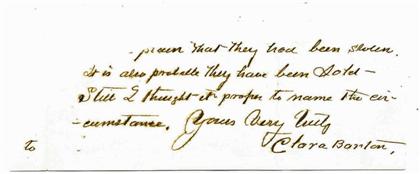 -plain that they had been stolen.
It is also probable they have been sold -
Still I thought it proper to name the cir-
-cumstance. Yours Very Truly
to Clara Barton.